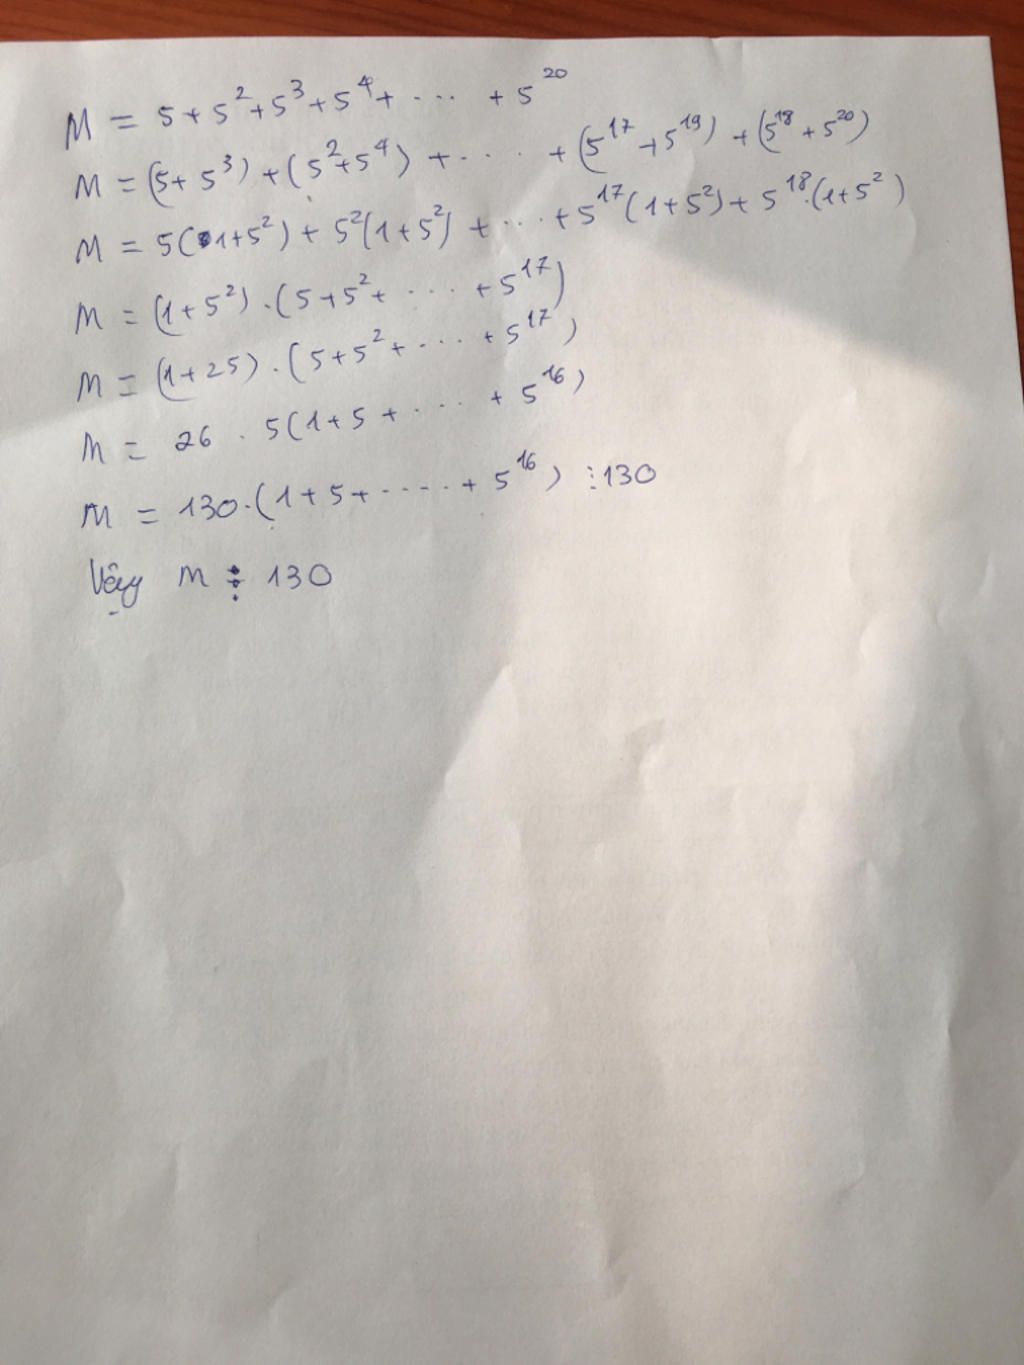 M = 5 + 5² + 5³ + 5⁴ + .... + 5²⁰
M = (5 + 5³) + (5² + 5⁴) + .... + (5¹⁷ + 5¹⁹) + (5¹⁸ + 5²⁰)
M = 5(1+5²) + 5²(1+5²) + ... + 5¹⁷(1+5²) + 5¹⁸.(1+5²)
M = (1 + 5²) . (5 + 5² + .... + 5¹⁷)
M = (1 + 25) . (5 + 5² + .... + 5¹⁷)
M = 26 . 5(1 + 5 + .... + 5¹⁶)
M = 130.(1 + 5 + ..... + 5¹⁶) ⋮ 130
Vậy M ⋮ 130